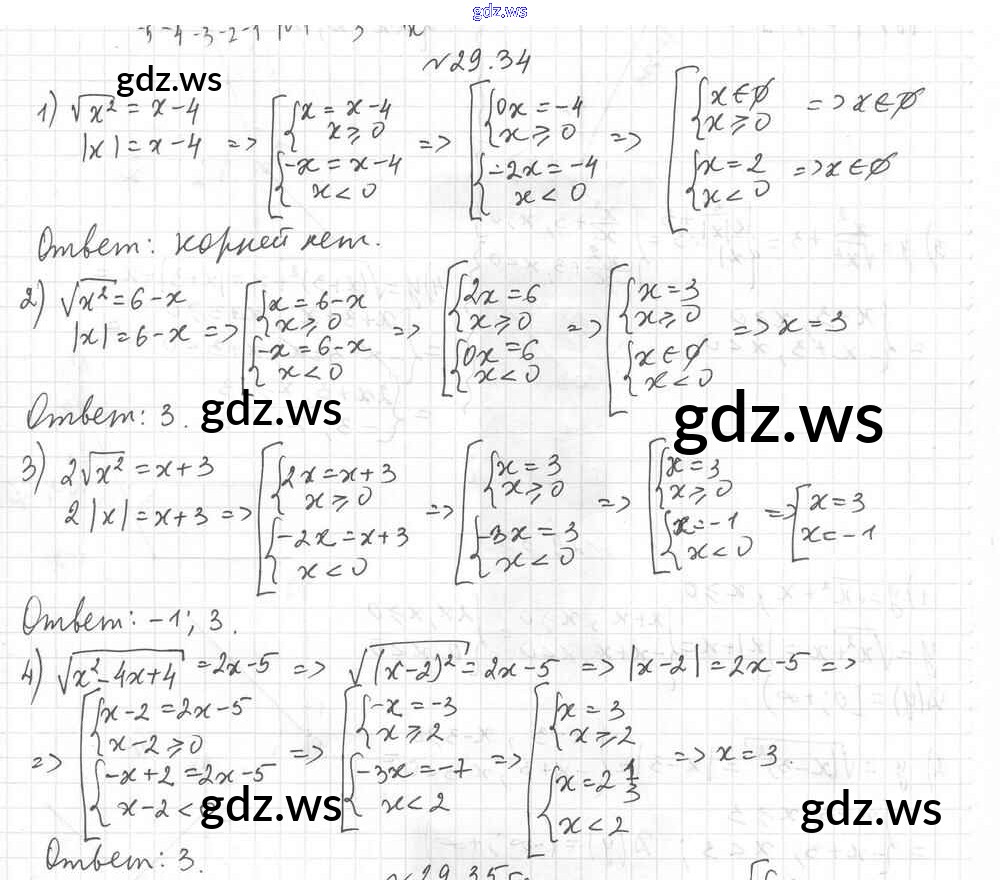 gdz.ws
-5 -4 -3 -2 -1
№29.34
gdz.ws
1) √x² = x-4
|x| = x-4 => [{x = x-4 x≥0 {-x = x-4 x<0 => [{0x = -4 x≥0 {-2x = -4 x<0 => [{x∈∅ x≥0 => x∈∅ {x=2 x<0 => x∈∅
Ответ: корней нет.
2) √x² = 6-x
|x| = 6-x => [{x = 6-x x≥0 {-x = 6-x x<0 => [{2x = 6 x≥0 {0x = 6 x<0 => [{x = 3 x≥0 {x∈∅ x<0 => x = 3
Ответ: 3.
gdz.ws
gdz.ws
3) 2√x² = x+3
2|x| = x+3 => [{2x = x+3 x≥0 {-2x = x+3 x<0 => [{x = 3 x≥0 {-3x = 3 x<0 => [{x = 3 x≥0 {x = -1 x<0 => [x = 3 x = -1
Ответ: -1; 3.
4) √x²-4x+4 = 2x-5 => √(x-2)² = 2x-5 => |x-2| = 2x-5 =>
=> [{x-2 = 2x-5 x-2≥0 {-x+2 = 2x-5 x-2< => [{-x = -3 x≥2 {-3x = -7 x<2 => [{x = 3 x≥2 {x = 2 1/3 x<2 => x = 3.
gdz.ws
gdz.ws
Ответ: 3.
№29.35